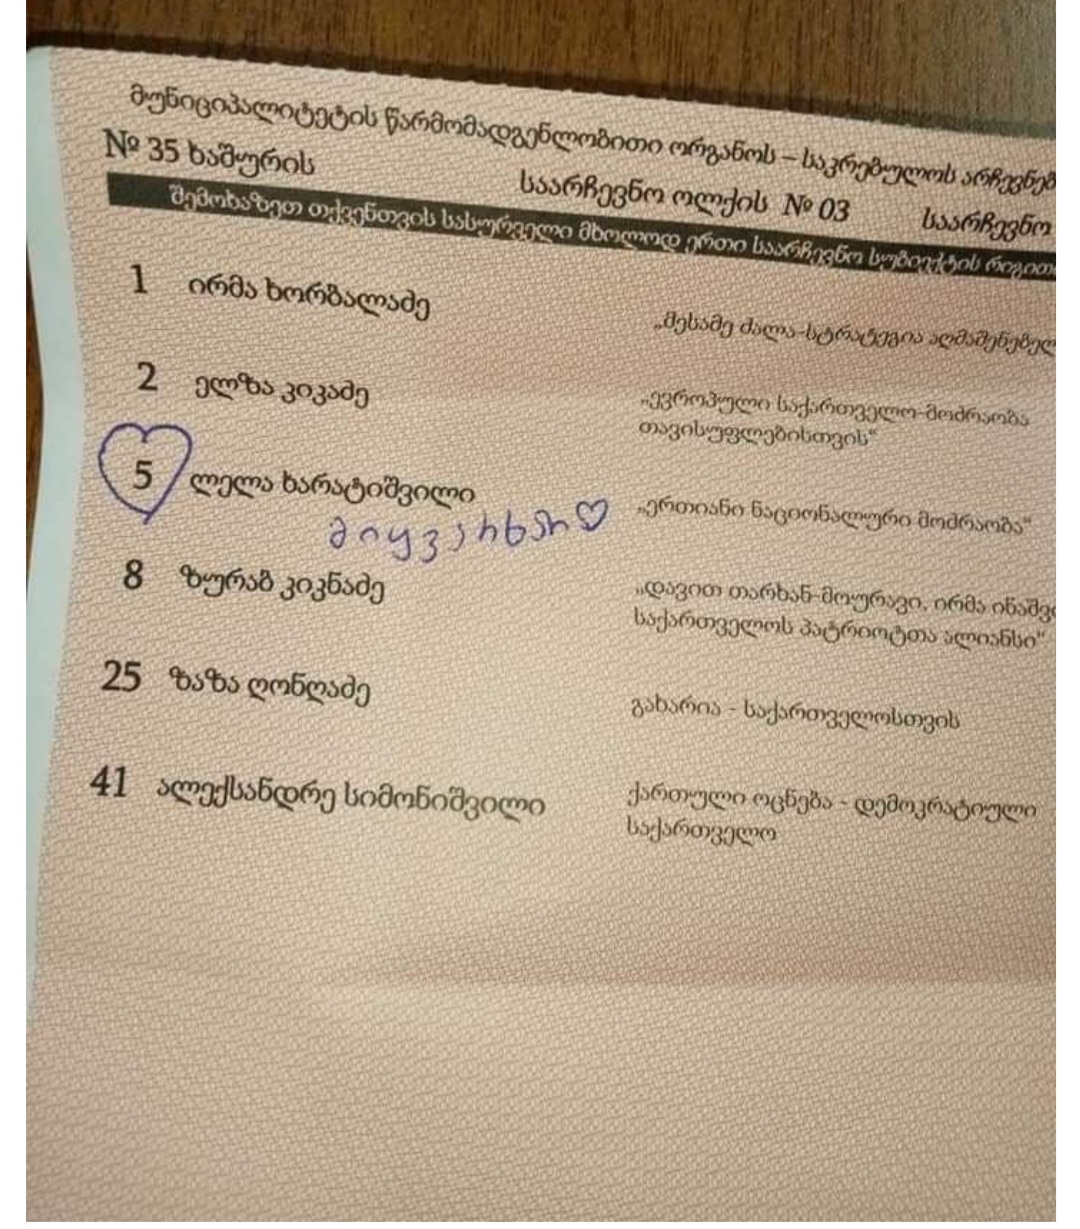 მუნიციპალიტეტის წარმომადგენლობითი ორგანოს – საკრებულოს არჩევნებ
№ 35 ხაშურის საარჩევნო ოლქის № 03 საარჩევნო
შემოხაზეთ თქვენთვის სასურველი მხოლოდ ერთი საარჩევნო სუბიექტის რიგითი
1 ირმა ხორბალაძე „მესამე ძალა-სტრატეგია აღმაშენებელ
2 ელზა კიკაძე „ევროპული საქართველო-მოძრაობა
თავისუფლებისთვის“
5 ლელა ხარატიშვილი „ერთიანი ნაციონალური მოძრაობა“
მიყვარხარ ♡
8 ზურაბ კიკნაძე „დავით თარხან-მოურავი, ირმა ინაშვ
საქართველოს პატრიოტთა ალიანსი“
25 ზაზა ღონღაძე გახარია - საქართველოსთვის
41 ალექსანდრე სიმონიშვილი ქართული ოცნება - დემოკრატიული
საქართველო